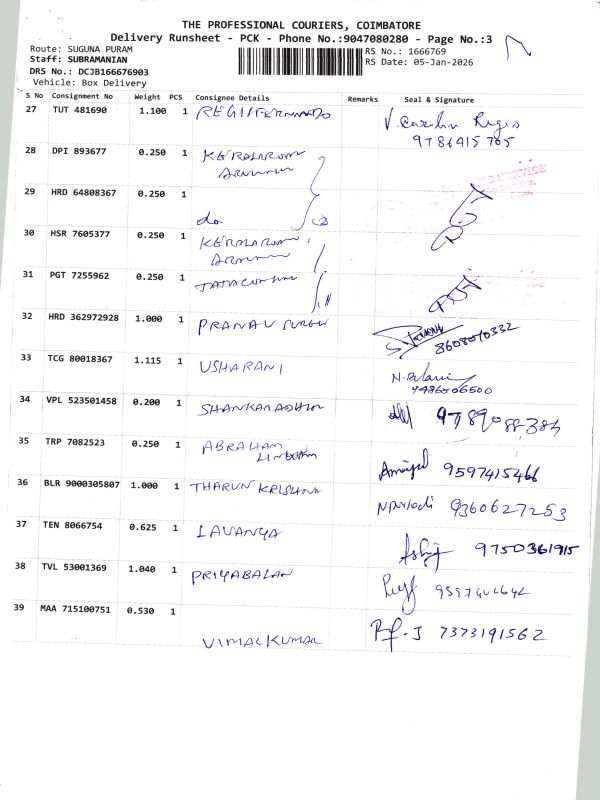 THE PROFESSIONAL COURIERS, COIMBATORE
Delivery Runsheet - PCK - Phone No.:9047080280 - Page No.:3
Route: SUGUNA PURAM
RS No.: 1666769
Staff: SUBRAMANIAN
RS Date: 05-Jan-2026
DRS No.: DCJB166676903
Vehicle: Box Delivery
S No Consignment No Weight PCS Consignee Details Remarks Seal & Signature
27 TUT 481690 1.100 1
28 DPI 893677 0.250 1
29 HRD 64808367 0.250 1 do
30 HSR 7605377 0.250 1
31 PGT 7255962 0.250 1
32 HRD 362972928 1.000 1 PRANAV
8608070332
33 TCG 80018367 1.115 1 USHARANI
9486006500
34 VPL 523501458 0.200 1
35 TRP 7082523 0.250 1 ABRAHAM
9597415466
36 BLR 9000305807 1.000 1 THARUN KRISHNA 9360627253
37 TEN 8066754 0.625 1 LAVANYA 9750361915
38 TVL 53001369 1.040 1 PRIYABALAN
39 MAA 715100751 0.530 1 VIMAL KUMAR 7373191562